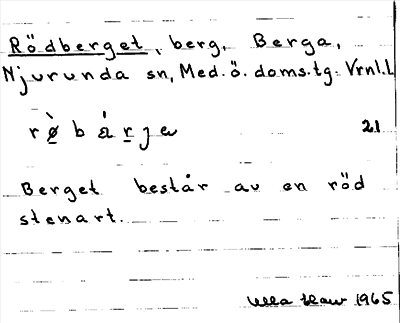 Rödberget, berg, Berga,
Njurunda sn, Med.ö. doms.tg. Vrnl.L
rø̀bárje 21
Berget består av en röd
stenart.
Ulla 1965